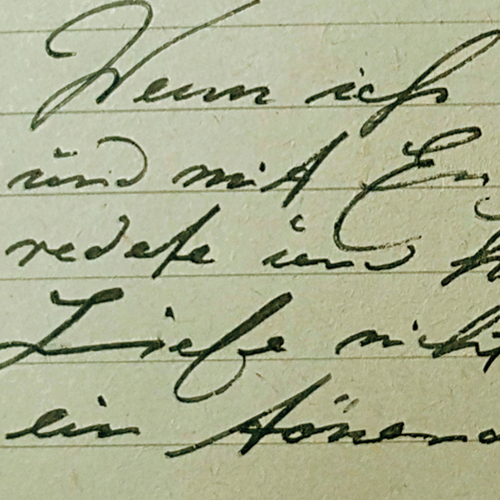 Wenn ich
und mit En
redete und h
Liebe nich
ein tönend